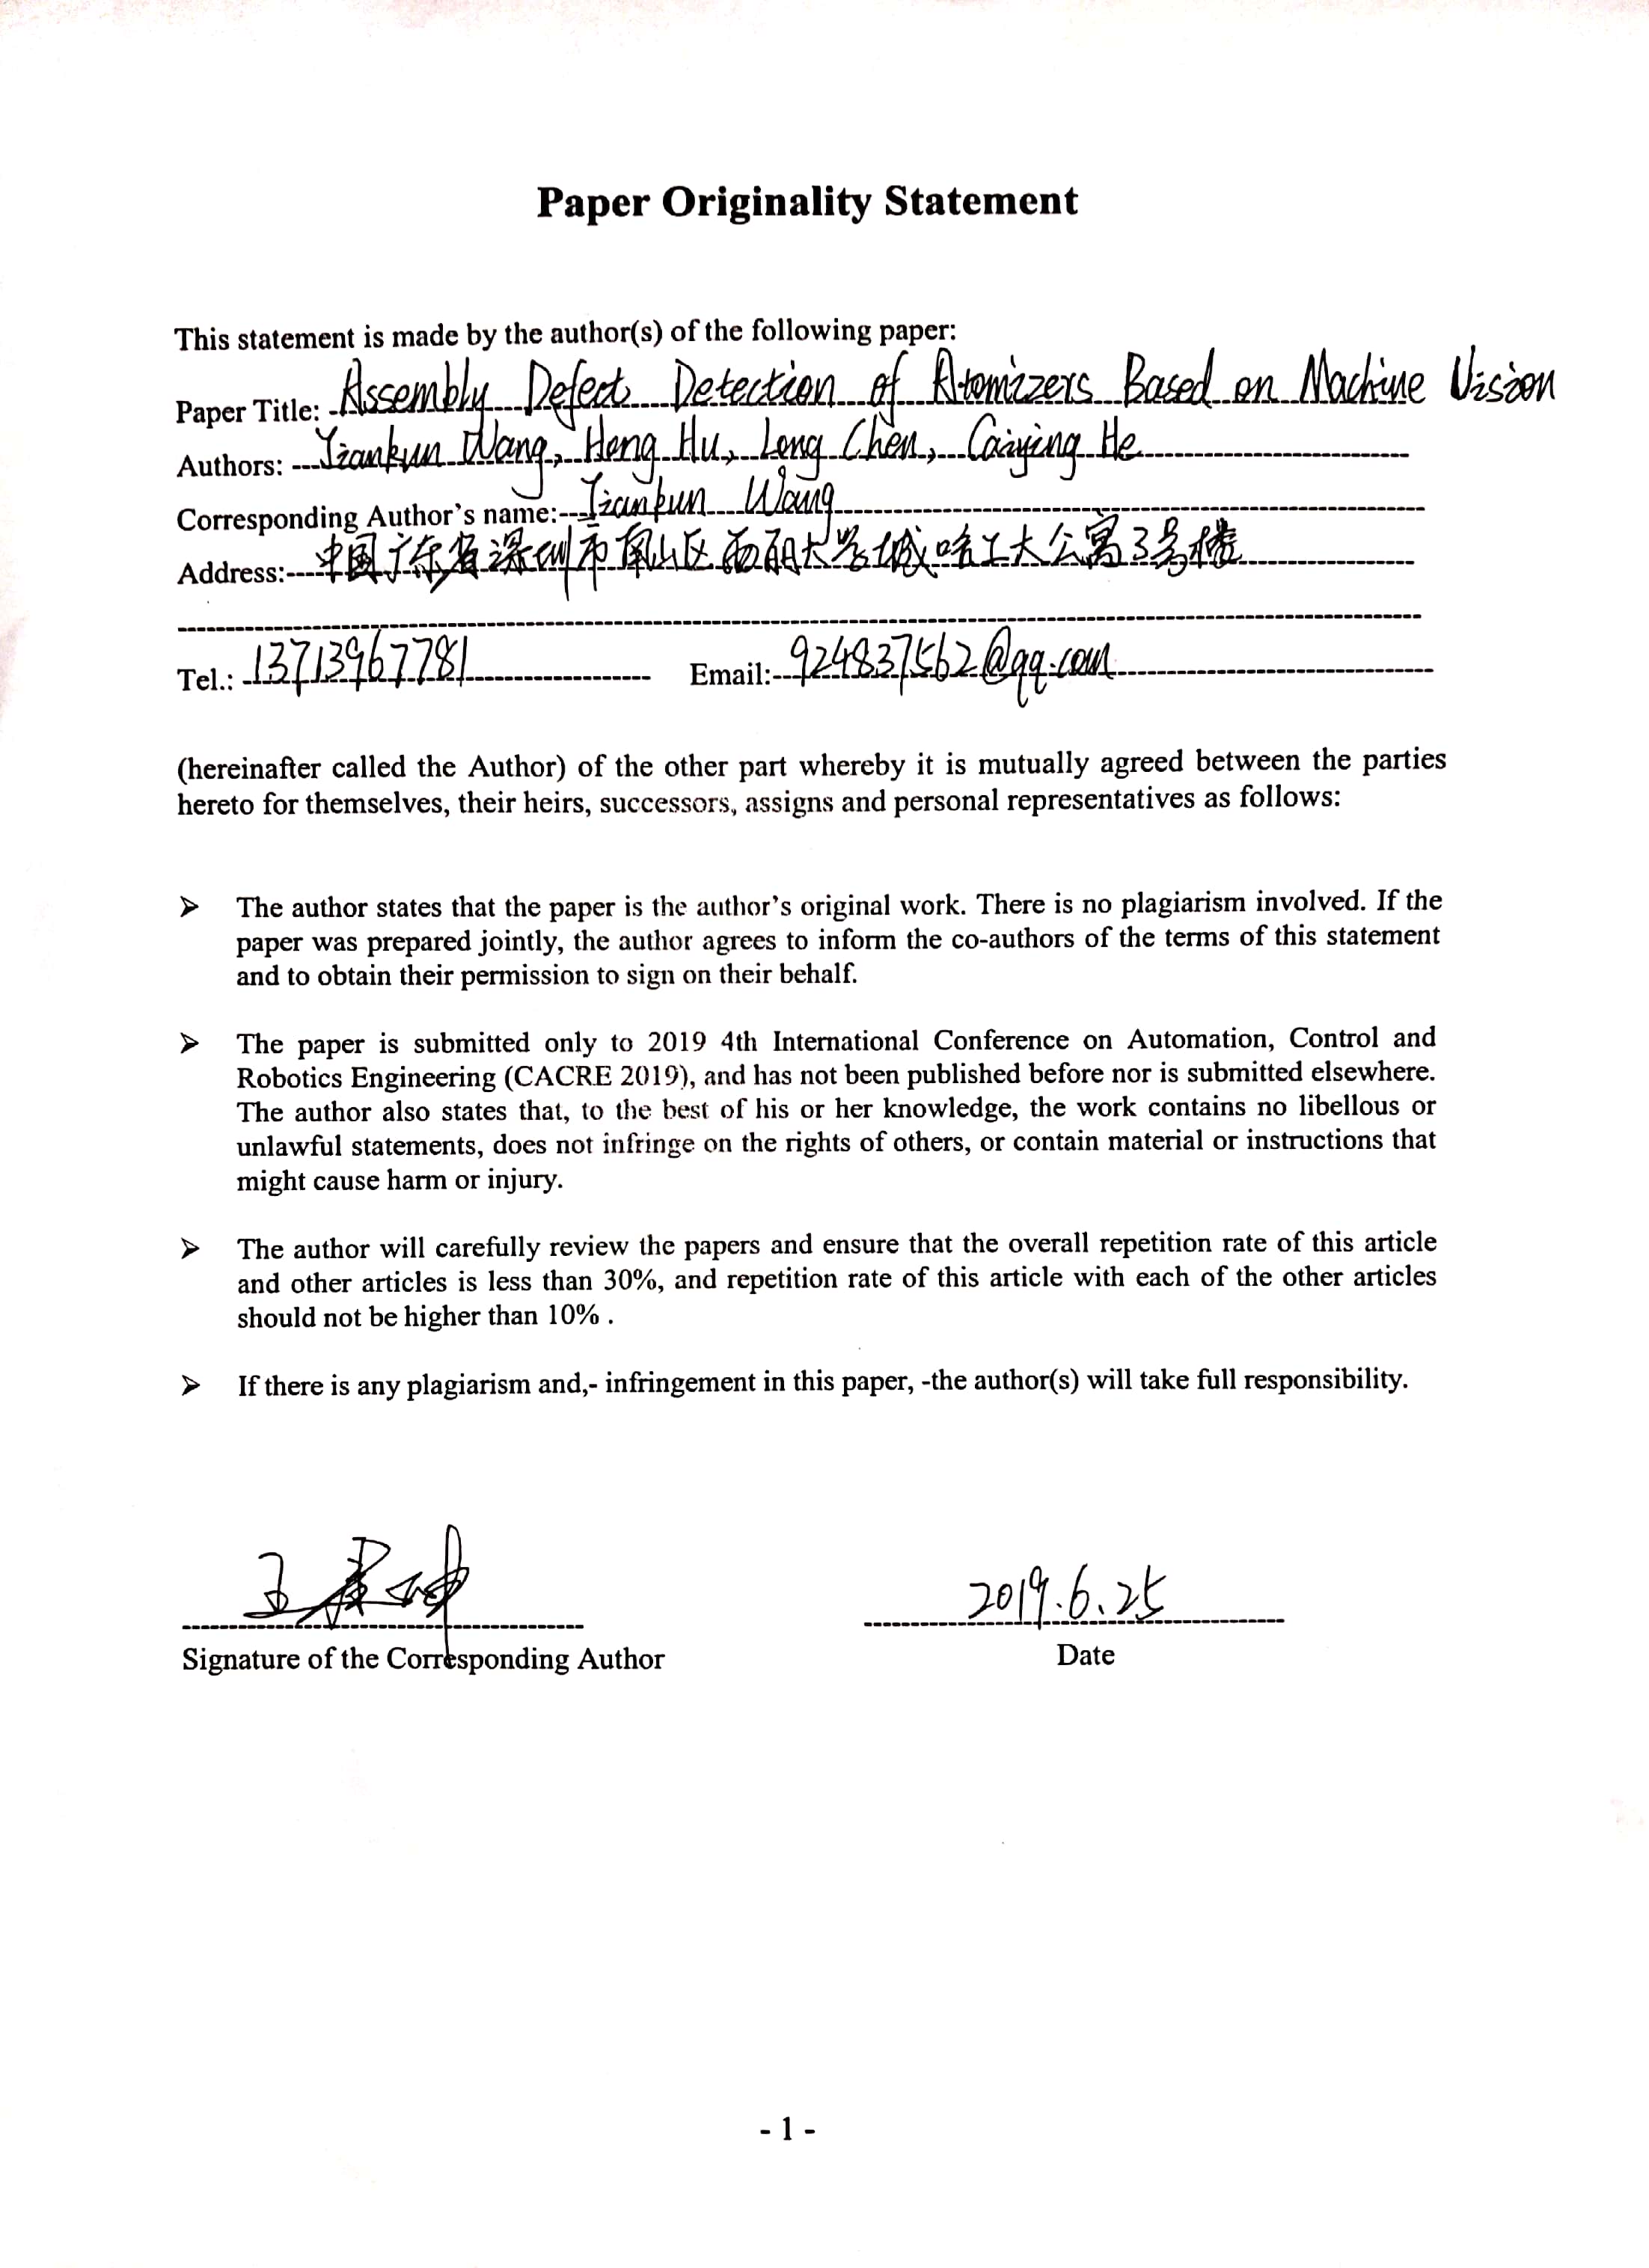 Paper Originality Statement
This statement is made by the author(s) of the following paper:
Paper Title: Assembly Defect Detection of Atomizzers Based on Machine Vision
Authors: Jiankun Wang, Heng Hu, Long Chen, Caiying He
Corresponding Author's name: Jiankun Wang
Address: 中国广东省深圳市南山区西丽大学城哈工大公寓3号楼
Tel.: 13713967781 Email: 924837562@qq.com
(hereinafter called the Author) of the other part whereby it is mutually agreed between the parties
hereto for themselves, their heirs, successors, assigns and personal representatives as follows:
➢ The author states that the paper is the author's original work. There is no plagiarism involved. If the
paper was prepared jointly, the author agrees to inform the co-authors of the terms of this statement
and to obtain their permission to sign on their behalf.
➢ The paper is submitted only to 2019 4th International Conference on Automation, Control and
Robotics Engineering (CACRE 2019), and has not been published before nor is submitted elsewhere.
The author also states that, to the best of his or her knowledge, the work contains no libellous or
unlawful statements, does not infringe on the rights of others, or contain material or instructions that
might cause harm or injury.
➢ The author will carefully review the papers and ensure that the overall repetition rate of this article
and other articles is less than 30%, and repetition rate of this article with each of the other articles
should not be higher than 10% .
➢ If there is any plagiarism and,- infringement in this paper, -the author(s) will take full responsibility.
王 坤 2019.6.25
Signature of the Corresponding Author Date
- 1 -